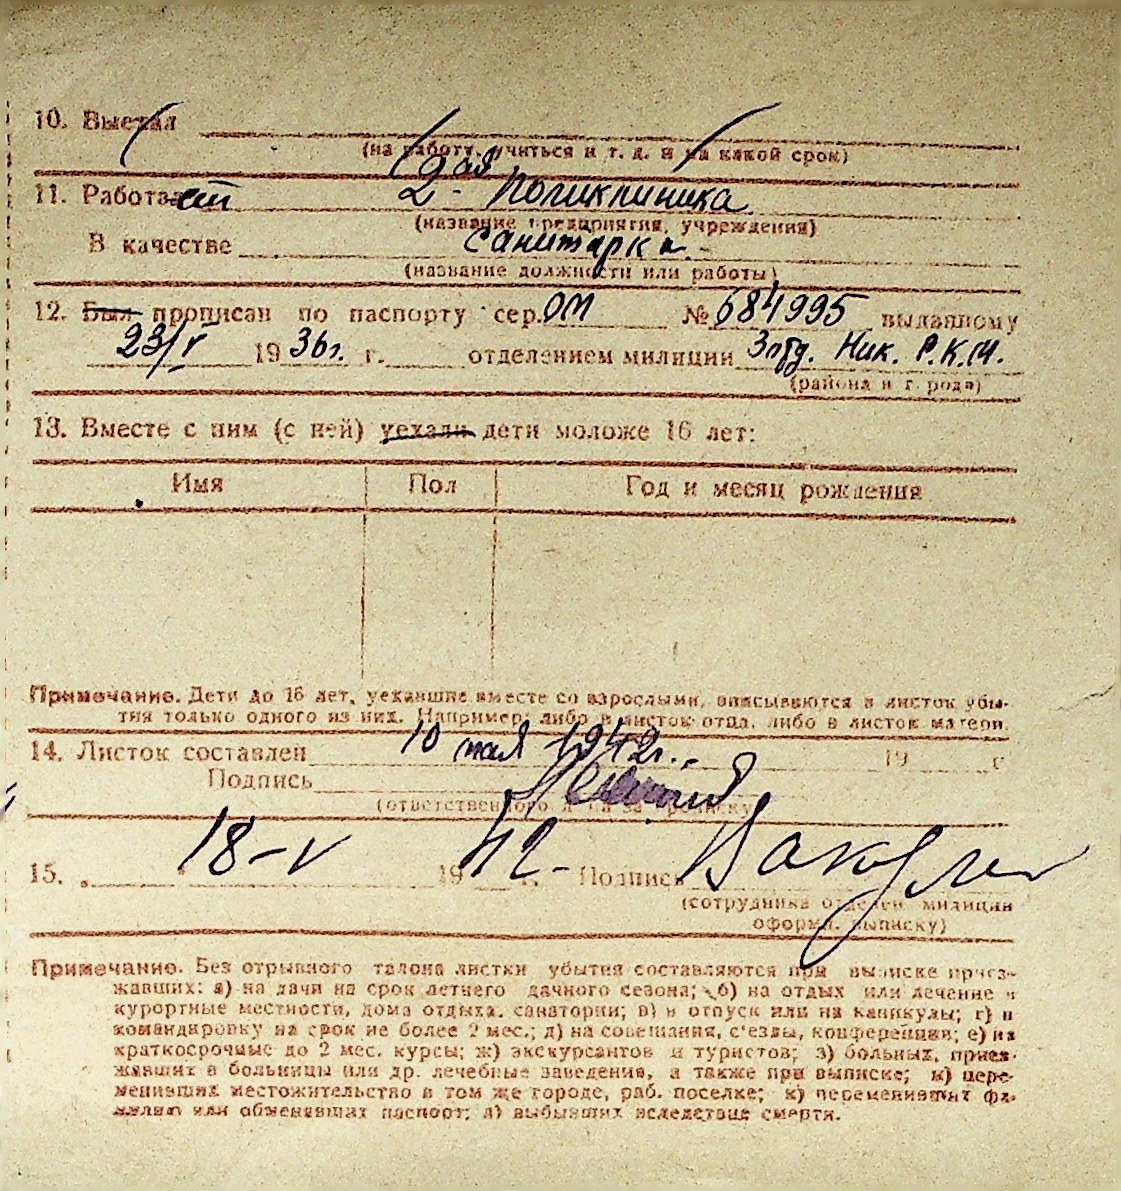 10. Выехал
(на работу, учиться и т. д. и на какой срок)
11. Работает 2-ая Поликлиника
(название предприятия, учреждения)
В качестве санитарка
(название должности или работы)
12. Был прописан по паспорту сер. ОП № 684995 выданному
23/V 1936г. г. отделением милиции 3 отд. Ник. Р.К.М.
(района и города)
13. Вместе с ним (с ней) уехали дети моложе 16 лет:
Имя Пол Год и месяц рождения
Примечание. Дети до 16 лет, уехавшие вместе со взрослыми, вписываются в листок убы-
тия только одного из них. Например, либо в листок отца, либо в листок матери.
14. Листок составлен 10 мая 1942г. 19 г
Подпись
(ответственного лица за прописку)
15. 18-V 1942 г. Подпись
(сотрудника отделен. милиции
оформ. выписку)
Примечание. Без отрывного талона листки убытия составляются при выписке приез-
жавших: а) на дачи на срок летнего дачного сезона; б) на отдых или лечение в
курортные местности, дома отдыха, санатории; в) в отпуск или на каникулы; г) в
командировку на срок не более 2 мес.; д) на совещания, с'езды, конференции; е) на
краткосрочные до 2 мес. курсы; ж) экскурсантов и туристов; з) больных, приез-
жавших в больницы или др. лечебные заведения, а также при выписке; и) пере-
менивших местожительство в том же городе, раб. поселке; к) переменивших фа-
милию или обменивших паспорт; л) выбывших вследствие смерти.